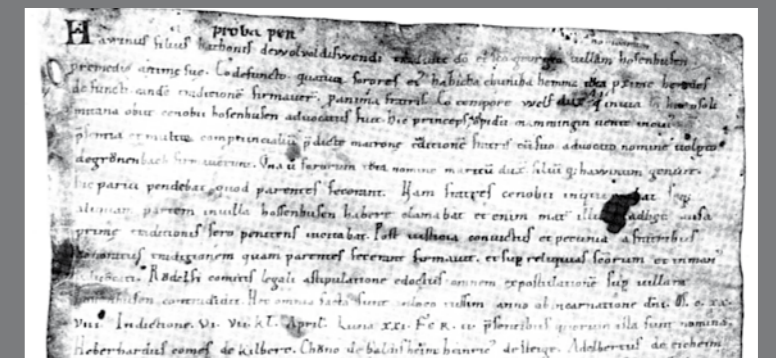 proba pen
Hawinus filius harbonis dewolvoldiswendi tradidit dō et sco georgio villam hosenhusen
premedio anime sue. Co defuncto quatuor sorores ei habicha chuniba hemma
defuncti eandē traditionē firmaverꝶ. panima fratris. Eo tempore welf dux q̇ invia
mitana obiit cenobii hosenhusen advocatus fuit. Hic princeps opidū mammingin venit
psentia et multitu comprincialiū p̄dicte matrone traditionē fratris cū suo advocato nomine
degrönenbach firmaverunt. Una ū sororum nomine maritū dux. filiū q; hawinum genuit.
hic parvi pendebat quod parentes fecerant. Nam fratres cenobii
aliquam partem invilla hossenhusen habere clamabat et enim mat adhuc
prime traditionis sero penitens incitabat. Post iusticia convictus et pecunia a fratribus
traditionem quam parentes fecerant firmavit. et sup reliquias scorum et in man
Rǒdelfi comitis legali astipulatione edoctus omnem expostulationē sup villam
contradidit. Hec omnia facta sunt inloco anno ab incarnatione dn̄i. M. c. xx.
viiii. Indictione. VI. VII. kł. April. luna XXI. FER. IV p̄sentibus quorum ista sunt nomina.
Heberhardus comes de kilberc. Chǒno de balnsheim heinric̄ desteige. Adelbertus de eicheim